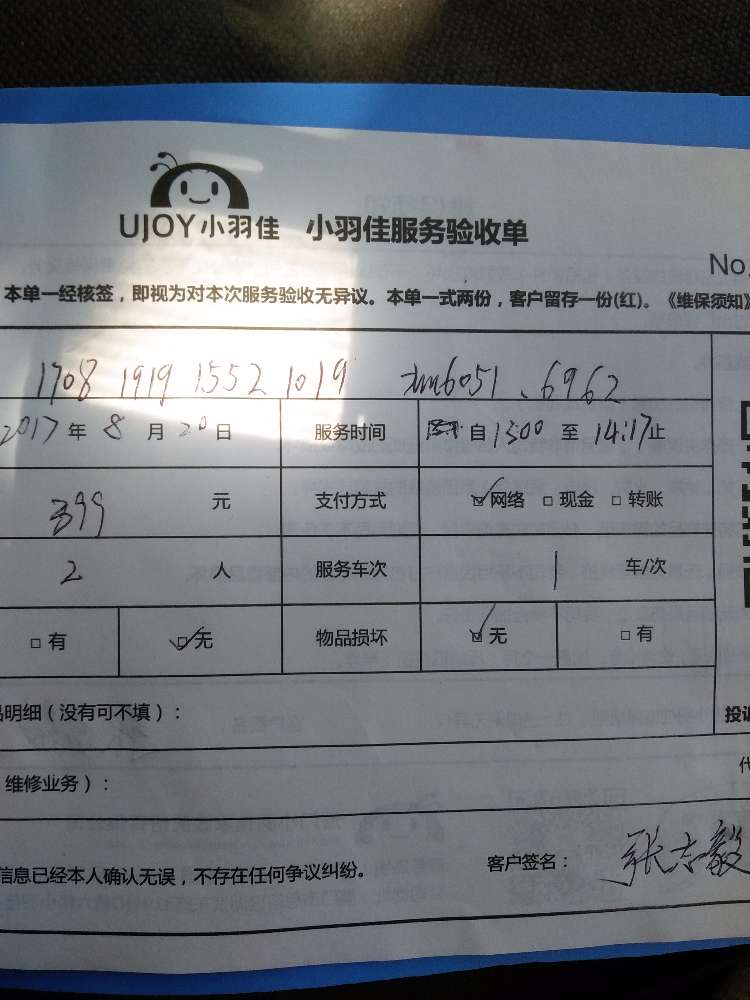 UJOY小羽佳 小羽佳服务验收单
No.
本单一经核签，即视为对本次服务验收无异议。本单一式两份，客户留存一份(红)。《维保须知》
1708 1919 1552 1019 xm6051、6962
2017年8月20日 服务时间 自13:00至14:17止
399元 支付方式 ☑网络 □现金 □转账
2人 服务车次 1车/次
□有 ☑无 物品损坏 ☑无 □有
明细（没有可不填）：
投诉
维修业务）：
代
信息已经本人确认无误，不存在任何争议纠纷。 客户签名： 张志毅